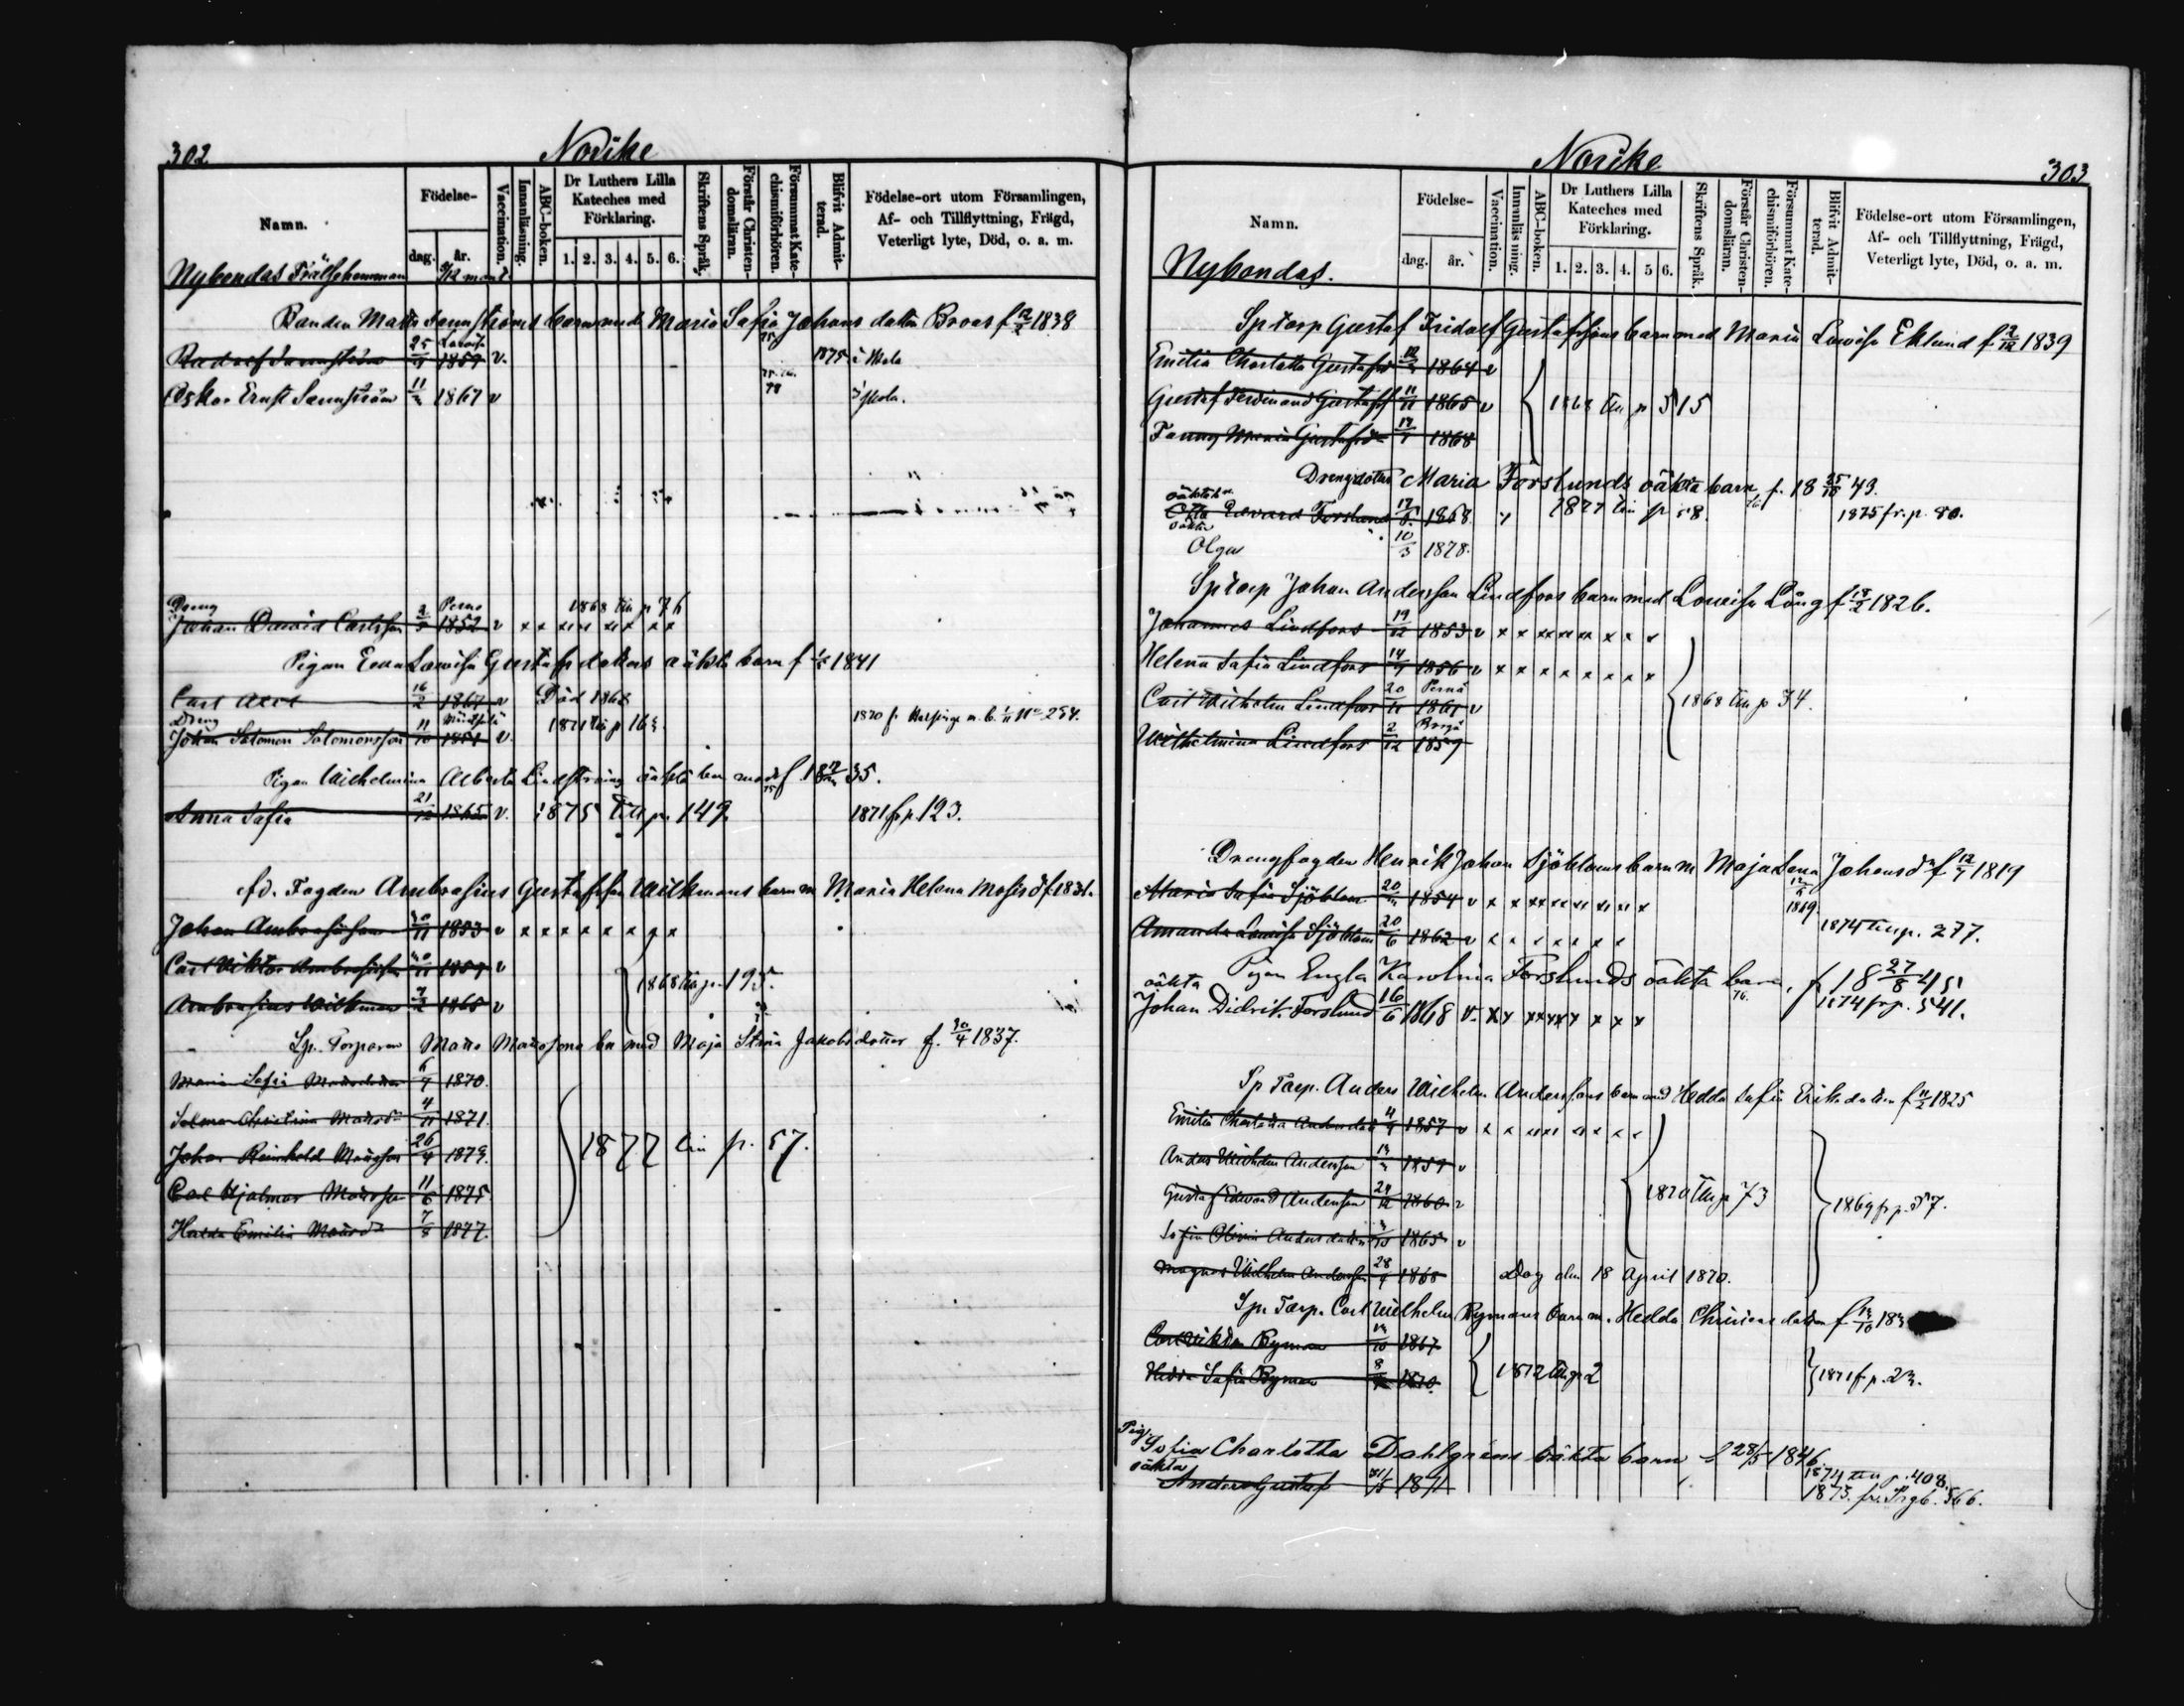 302
Norike
Namn.
Födelse-
dag.
år.
Vaccination.
Innanläsning.
ABC-boken.
Dr Luthers Lilla
Kateches med
Förklaring.
1. 2. 3. 4. 5. 6.
Skriftens Språk.
Förstår Christen-
domsläran.
Försummat Kate-
chismiförhören.
Blifvit Admit-
terad.
Födelse-ort utom Församlingen,
Af- och Tillflyttning, Frägd,
Veterligt lyte, Död, o. a. m.
Nybondas Frälsehemman
Maria Safia Johans dotter f 12/2 1838
1859 v. 1875 i skola
Oskar Ernst Sannström 1867 v i skola.
Dreng Perno 1868 till p 76
Johan David Carlsson 1852 v x x x x x x x x
Pigan Eva Lowisa Gustafsdotters oäkta barn f 1841
Carl Axel 16/2 1867 v Död 1868
Dreng
Johan Salomon Salomonsson 11/10 1851 v.
Pigan Wilhelmina Alberta oäkta barn f. 18 35.
Anna Safia 21/12 1865 v. 1875 till p. 149. 1871 fr p. 123.
fd. Fogden Ambrosius Gustafsson Wilkmans barn m Maria Helena Mosis d f. 1831.
Johan Ambrosiusson 1853 v x x x x x x x x
Carl Viktor Ambrosiusson 1857 v
1868 till p. 195.
Ambrosius Wilkman 7/2 1865 v
Sp. Torparen Matts Mattssons bn med Maja Stina Jakobsdotter f. 30/4 1837.
Maria Safia 1870.
Selma Christina Mattsdr 4/11 1871
Johan Reinhold Mattsson 26/4 1874.
1877 till p. 57.
Carl Hjalmar Mattsson 11/6 1875
Hulda Emilia Mattsdr 7/8 1877.
Norike
303
Namn.
Födelse-
dag.
år.
Vaccination.
Innanläsning.
ABC-boken.
Dr Luthers Lilla
Kateches med
Förklaring.
1. 2. 3. 4. 5 6.
Skriftens Språk.
Förstår Christen-
domsläran.
Försummat Kate-
chismiförhören.
Blifvit Admit-
terad.
Födelse-ort utom Församlingen,
Af- och Tillflyttning, Frägd,
Veterligt lyte, Död, o. a. m.
Nybondas.
Sp torp Gustaf Fridolf Gustafssons barn med Maria Lowisa Eklund f 2/12 1839
Emilia Charlotta Gustafsd 1864 v
Gustaf Ferdinand Gustafss 11/11 1865 v 1868 till p 515
Fanny Maria Gustafsdr 1868
Maria Forslunds oäkta barn, f. 18 25/10 43.
oäkta
Otto Edvard Forslund 1868. v 1877 till p 58. 1875 fr. p. 80.
oäkta
Olga 10/3 1878.
Sp torp Johan Andersson Lindfors barn med Lowisa Lång f 1826.
Johannes Lindfors 19/12 1853 v x x x x x x x x x
Helena Safia Lindfors 1856 v x x x x x x x x
Perno
Carl Wilhelm Lindfors 20/11 1861 v 1868 till p 34.
Borgå
Wilhelmina Lindfors 2/12 1859
Drengfogden Henrik Johan Sjöbloms barn m Maja Lena Johansdr f 1819
Maria Safia Sjöblom 1854 v x x x x x x x x x 1819.
Amanda Lowisa Sjöblom 20/6 1862 v x x x x x x x 1874 till p. 277.
Pigan Engla Karolina Forslunds oäkta barn, f 18 27/8 45
oäkta
Johan Didrik Forslund 16/6 1868 v. x x x x x x x x x 1874 fr p. 541.
Sp Torp. Anders Wilhelm Anderssons barn med Hedda Safia Eriksdotter f 1825
Emilia Charlotta Andersdotter 1857 v x x x x x x x x
Anders Wilhelm Andersson 1859 v
Gustaf Edward Andersson 1860 v 1870 till p 73 1869 fr p. 57.
Sofia Olivia Andersdotter 1865 v
Magnus Wilhelm Andersson 28 1868 Dog den 18 April 1870.
Sp. Torp. Carl Wilhelm Rymans barn m. Hedda f 183
Ryman 1867
1872 till p 2 1871 f p. 23.
Hedda Safia Ryman 1870.
Pig.
Sofia Charlotta Dahlgréns oäkta barn f 28/5 1846.
oäkta
Anders Gustaf 1871 1874 till p. 408.
1873. fr. 566.